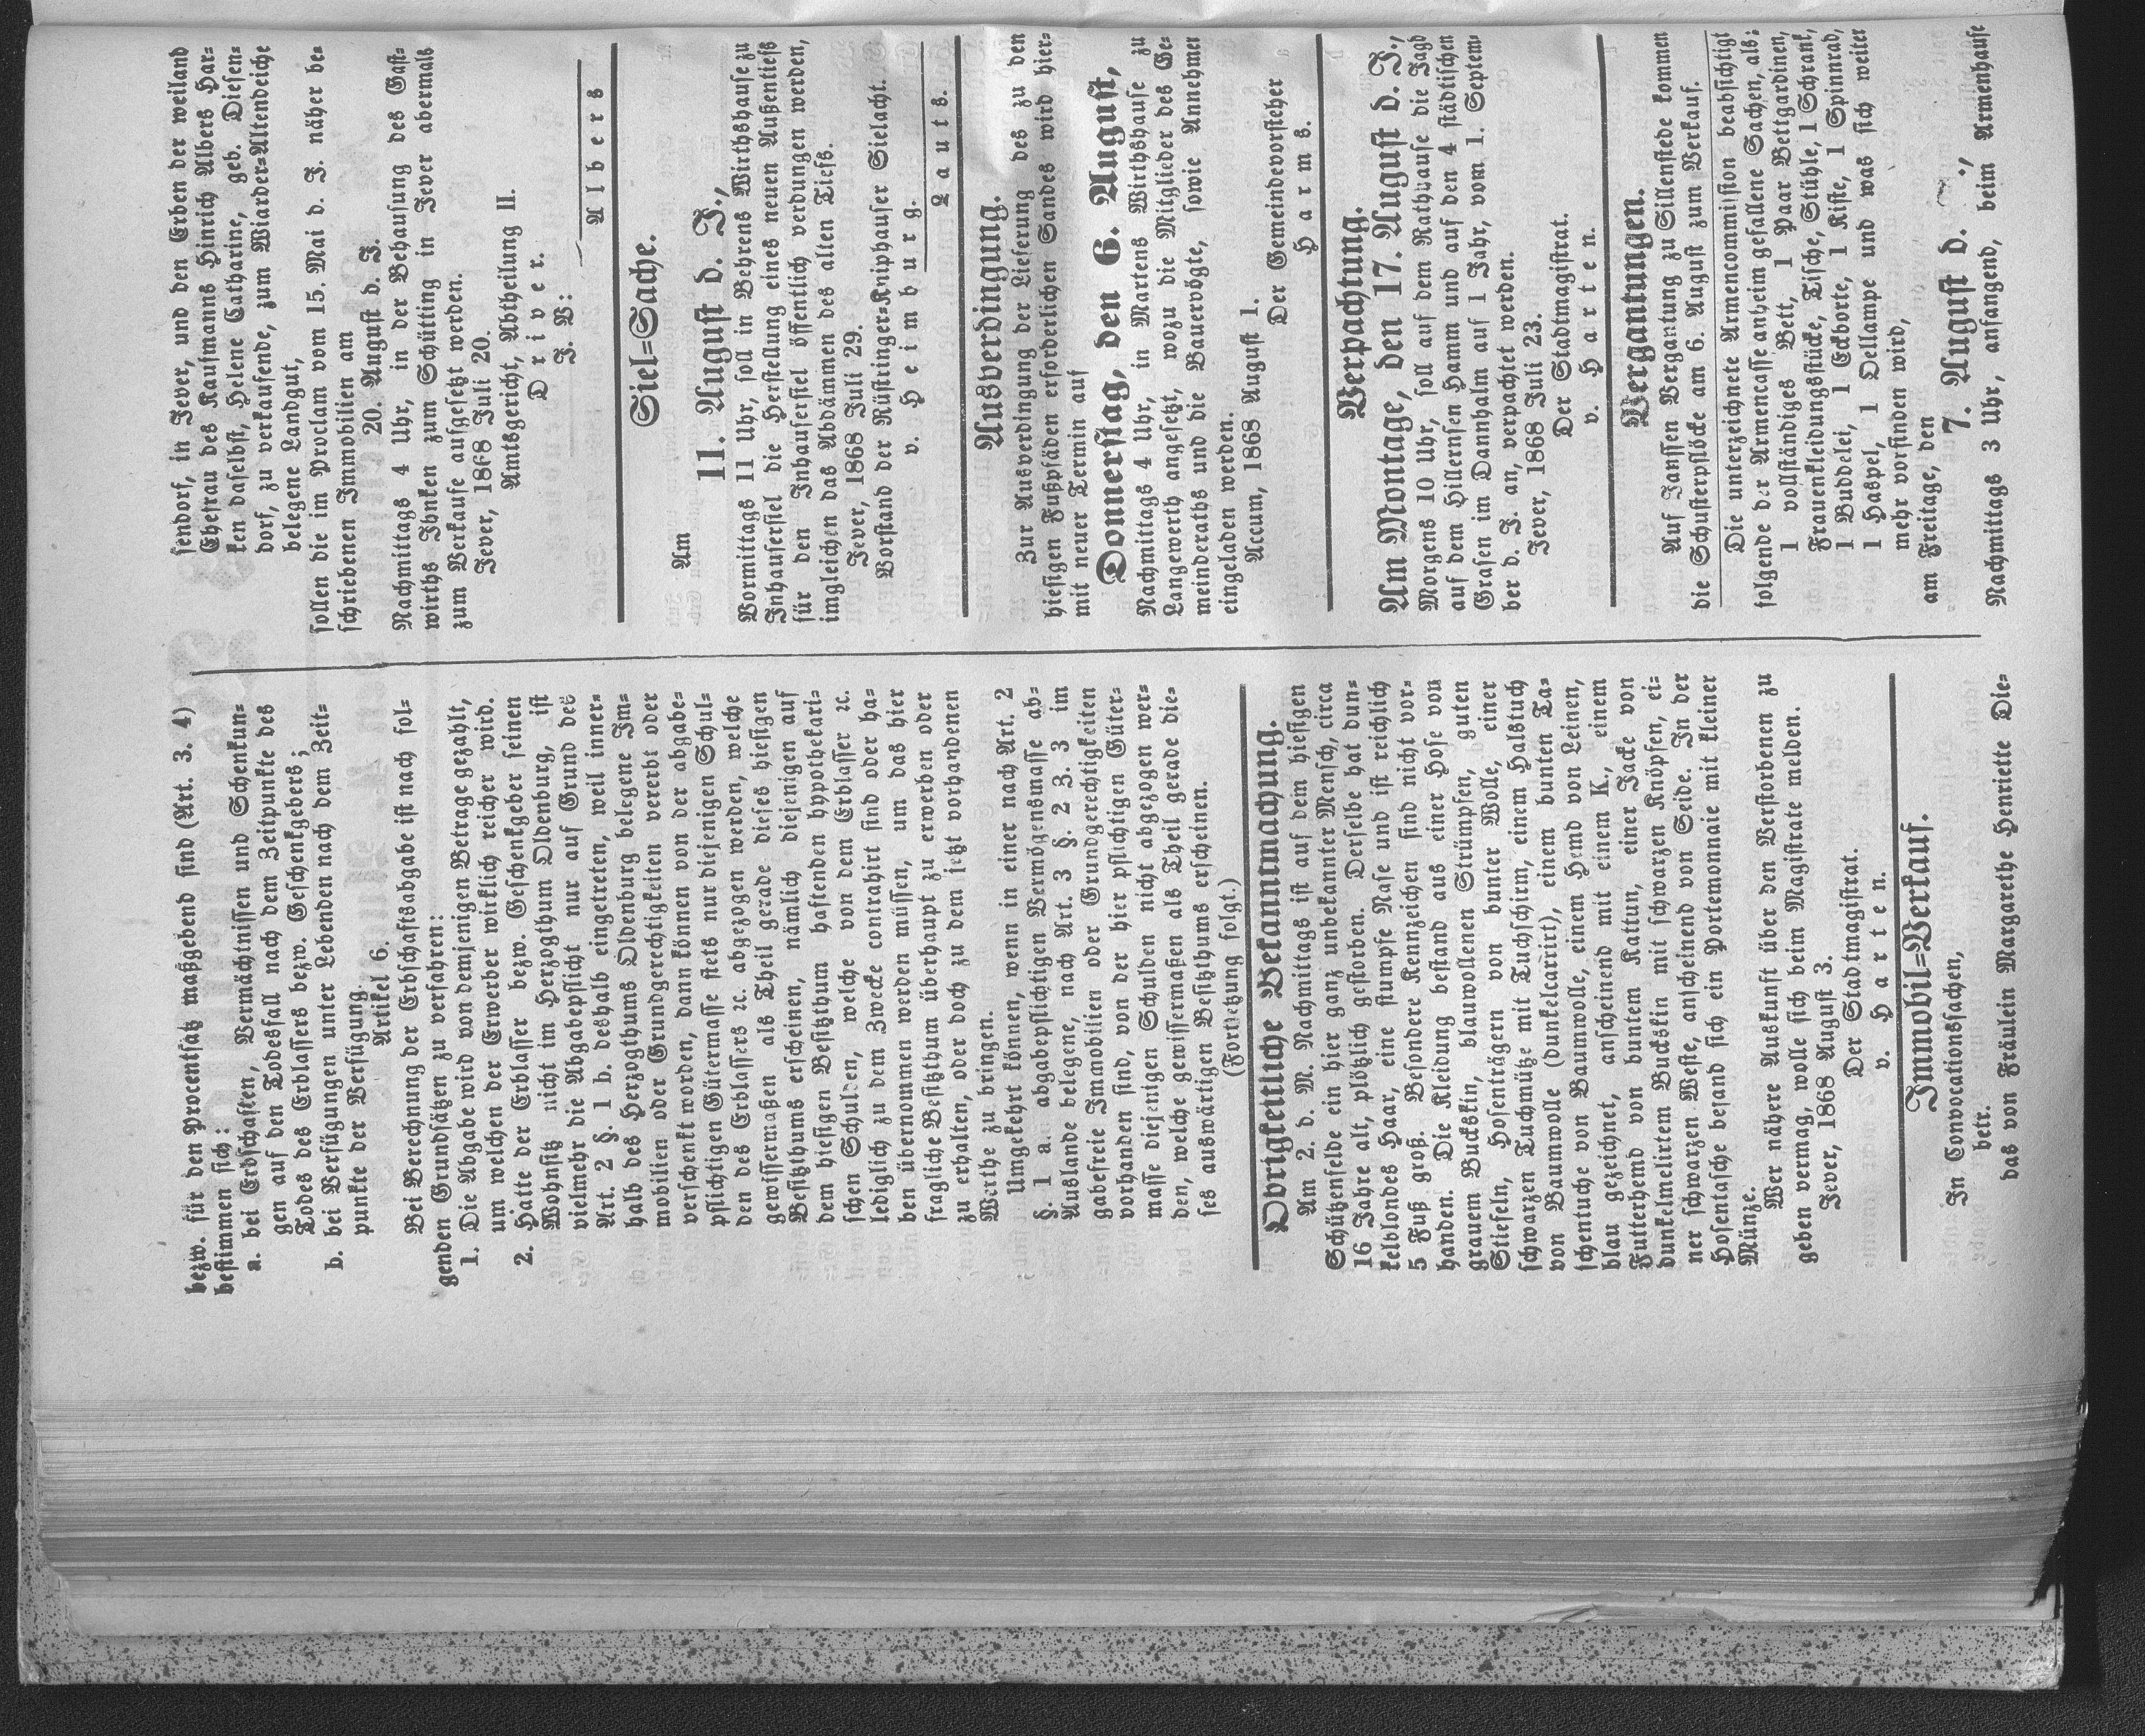 bezw. für den Procentsatz maßgebend sind (Art. 3. 4)
bestimmen sich:
a. bei Erbschaften, Vermächtnissen und Schenkun-
gen auf den Todesfall nach dem Zeitpunkte des
Todes des Erblassers bezw. Geschenkgebers;
b. bei Verfügungen unter Lebenden nach dem Zeit-
punkte der Verfügung.
Artikel 6.
Bei Berechnung der Erbschaftsabgabe ist nach fol-
genden Grundsätzen zu verfahren:
1. Die Abgabe wird von demjenigen Betrage gezahlt,
um welchen der Erwerber wirklich reicher wird.
2. Hatte der Erblasser bezw. Geschenkgeber seinen
Wohnsitz nicht im Herzogthum Oldenburg, ist
vielmehr die Abgabepflicht nur auf Grund des
Art. 2 §. 1 b. deshalb eingetreten, weil inner-
halb des Herzogthums Oldenburg belegene Im-
mobilien oder Grundgerechtigkeiten vererbt oder
verschenkt worden, dann können von der abgabe-
pflichtigen Gütermasse stets nur diejenigen Schul-
den des Erblassers ꝛc. abgezogen werden, welche
gewissermaßen als Theil gerade dieses hiesigen
Besitzthums erscheinen, nämlich diejenigen auf
dem hiesigen Besitzthum haftenden hypothekari-
schen Schulden, welche von dem Erblasser ꝛc.
lediglich zu dem Zwecke contrahirt sind oder ha-
ben übernommen werden müssen, um das hier
fragliche Besitzthum überhaupt zu erwerben oder
zu erhalten, oder doch zu dem jetzt vorhandenen
Werthe zu bringen.
Umgekehrt können, wenn in einer nach Art. 2
§. 1 a. abgabepflichtigen Vermögensmasse ab-
Auslande belegene, nach Art. 3 §. 2 3. 3 im
gabefreie Immobilien oder Grundgerechtigkeiten
vorhanden sind, von der hier pflichtigen Güter-
masse diejenigen Schulden nicht abgezogen wer-
den, welche gewissermaßen als Theil gerade die-
ses auswärtigen Besitzthums erscheinen.
(Fortsetzung folgt.)
Obrigkeitliche Bekanntmachung.
Am 2. d. M. Nachmittags ist auf dem hiesigen
Schützenfelde ein hier ganz unbekannter Mensch, circa
16 Jahre alt, plötzlich gestorben. Derselbe hat dun-
kelblondes Haar, eine stumpfe Nase und ist reichlich
5 Fuß groß. Besondere Kennzeichen sind nicht vor-
handen. Die Kleidung bestand aus einer Hose von
grauem Buckskin, blauwollenen Strümpfen, guten
Stiefeln, Hosenträgern von bunter Wolle, einer
schwarzen Tuchmütze mit Tuchschirm, einem Halstuch
von Baumwolle (dunkelcarrirt), einem bunten Ta-
schentuche von Baumwolle, einem Hemd von Leinen,
blau gezeichnet, anscheinend mit einem K., einem
Futterhemd von buntem Kattun, einer Jacke von
dunkelmelirtem Buckskin mit schwarzen Knöpfen, ei-
ner schwarzen Weste, anscheinend von Seide. In der
Hosentasche befand sich ein Portemonnaie mit kleiner
Münze.
Wer nähere Auskunft über den Verstorbenen zu
geben vermag, wolle sich beim Magistrate melden.
Jever, 1868 August 3.
Der Stadtmagistrat.
v. Harten.
Immobil-Verkauf.
In Convocationssachen,
betr.
das von Fräulein Margarethe Henriette Die-
sendorf, in Jever, und den Erben der weiland
Ehefrau des Kaufmanns Hinrich Albers Har-
ken daselbst, Helene Catharine, geb. Diesen-
dorf, zu verkaufende, zum Wiarder-Altendeiche
belegene Landgut,
sollen die im Proclam vom 15. Mai d. J. näher be-
schriebenen Immobilien am
20. August d. J.
Nachmittags 4 Uhr, in der Behausung des Gast-
wirths Ihnken zum Schütting in Jever abermals
zum Verkaufe aufgesetzt werden.
Jever, 1868 Juli 20.
Amtsgericht, Abtheilung II.
Driver.
J. V:
Albers
Siel-Sache.
Am
11. August d. J.,
Vormittags 11 Uhr, soll in Behrens Wirthshause zu
Inhausersiel die Herstellung eines neuen Außentiefs
für den Inhausersiel öffentlich verdungen werden,
imgleichen das Abdämmen des alten Tiefs.
Jever, 1868 Juli 29.
Vorstand der Rüstringer-Kniphauser Sielacht.
v. Heimburg.
Lauts.
Ausverdingung.
Zur Ausverdingung der Lieferung des zu den
hiesigen Fußpfäden erforderlichen Sandes wird hier-
mit neuer Termin auf
Donnerstag, den 6. August,
Nachmittags 4 Uhr, in Martens Wirthshause zu
Langewerth angesetzt, wozu die Mitglieder des Ge-
meinderaths und die Bauervögte, sowie Annehmer
eingeladen werden.
Accum, 1868 August 1.
Der Gemeindevorsteher
Harms.
Verpachtung.
Am Montage, den 17. August d. J.,
Morgens 10 Uhr, soll auf dem Rathhause die Jagd
auf dem Hillernsen Hamm und auf den 4 städtischen
Grasen im Dannhalm auf 1 Jahr, vom 1. Septem-
ber d. J. an, verpachtet werden.
Jever, 1868 Juli 23.
Der Stadtmagistrat.
v. Harten.
Vergantungen.
Auf Janssen Vergantung zu Sillenstede kommen
die Schusterpflöcke am 6. August zum Verkauf.
Die unterzeichnete Armencommission beabsichtigt
folgende der Armencasse anheim gefallene Sachen, als:
1 vollständiges Bett, 1 Paar Bettgardinen,
Frauenkleidungsstücke, Tische, Stühle, 1 Schrank,
1 Buddelei, 1 Eckborte, 1 Kiste, 1 Spinnrad,
1 Haspel, 1 Oellampe und was sich weiter
mehr vorfinden wird,
am Freitage, den
7. August d.
Nachmittags 3 Uhr, anfangend, beim Armenhause